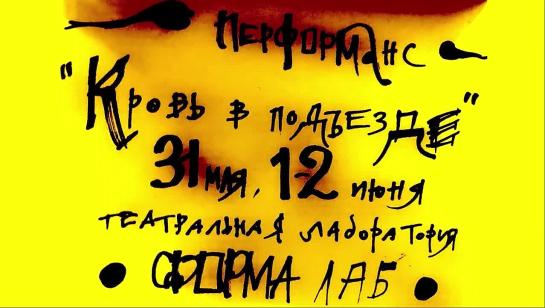 ПЕРФОРМАНС
"КРОВЬ В ПОДЪЕЗДЕ"
31 МАЯ, 1-2 ИЮНЯ
ТЕАТРАЛЬНАЯ ЛАБОРАТОРИЯ
ФОРМА ЛАБ